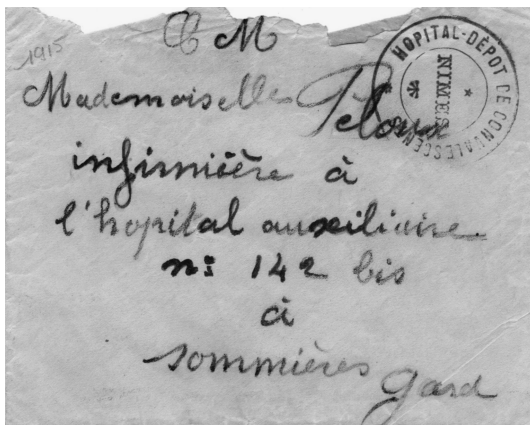 1915
C M
HOPITAL-DÉPOT DE CONVALESCENTS
NIMES
Mademoiselle Peloux
infirmière à
l'hopital auxiliaire
n: 142 bis
à
sommières
gard